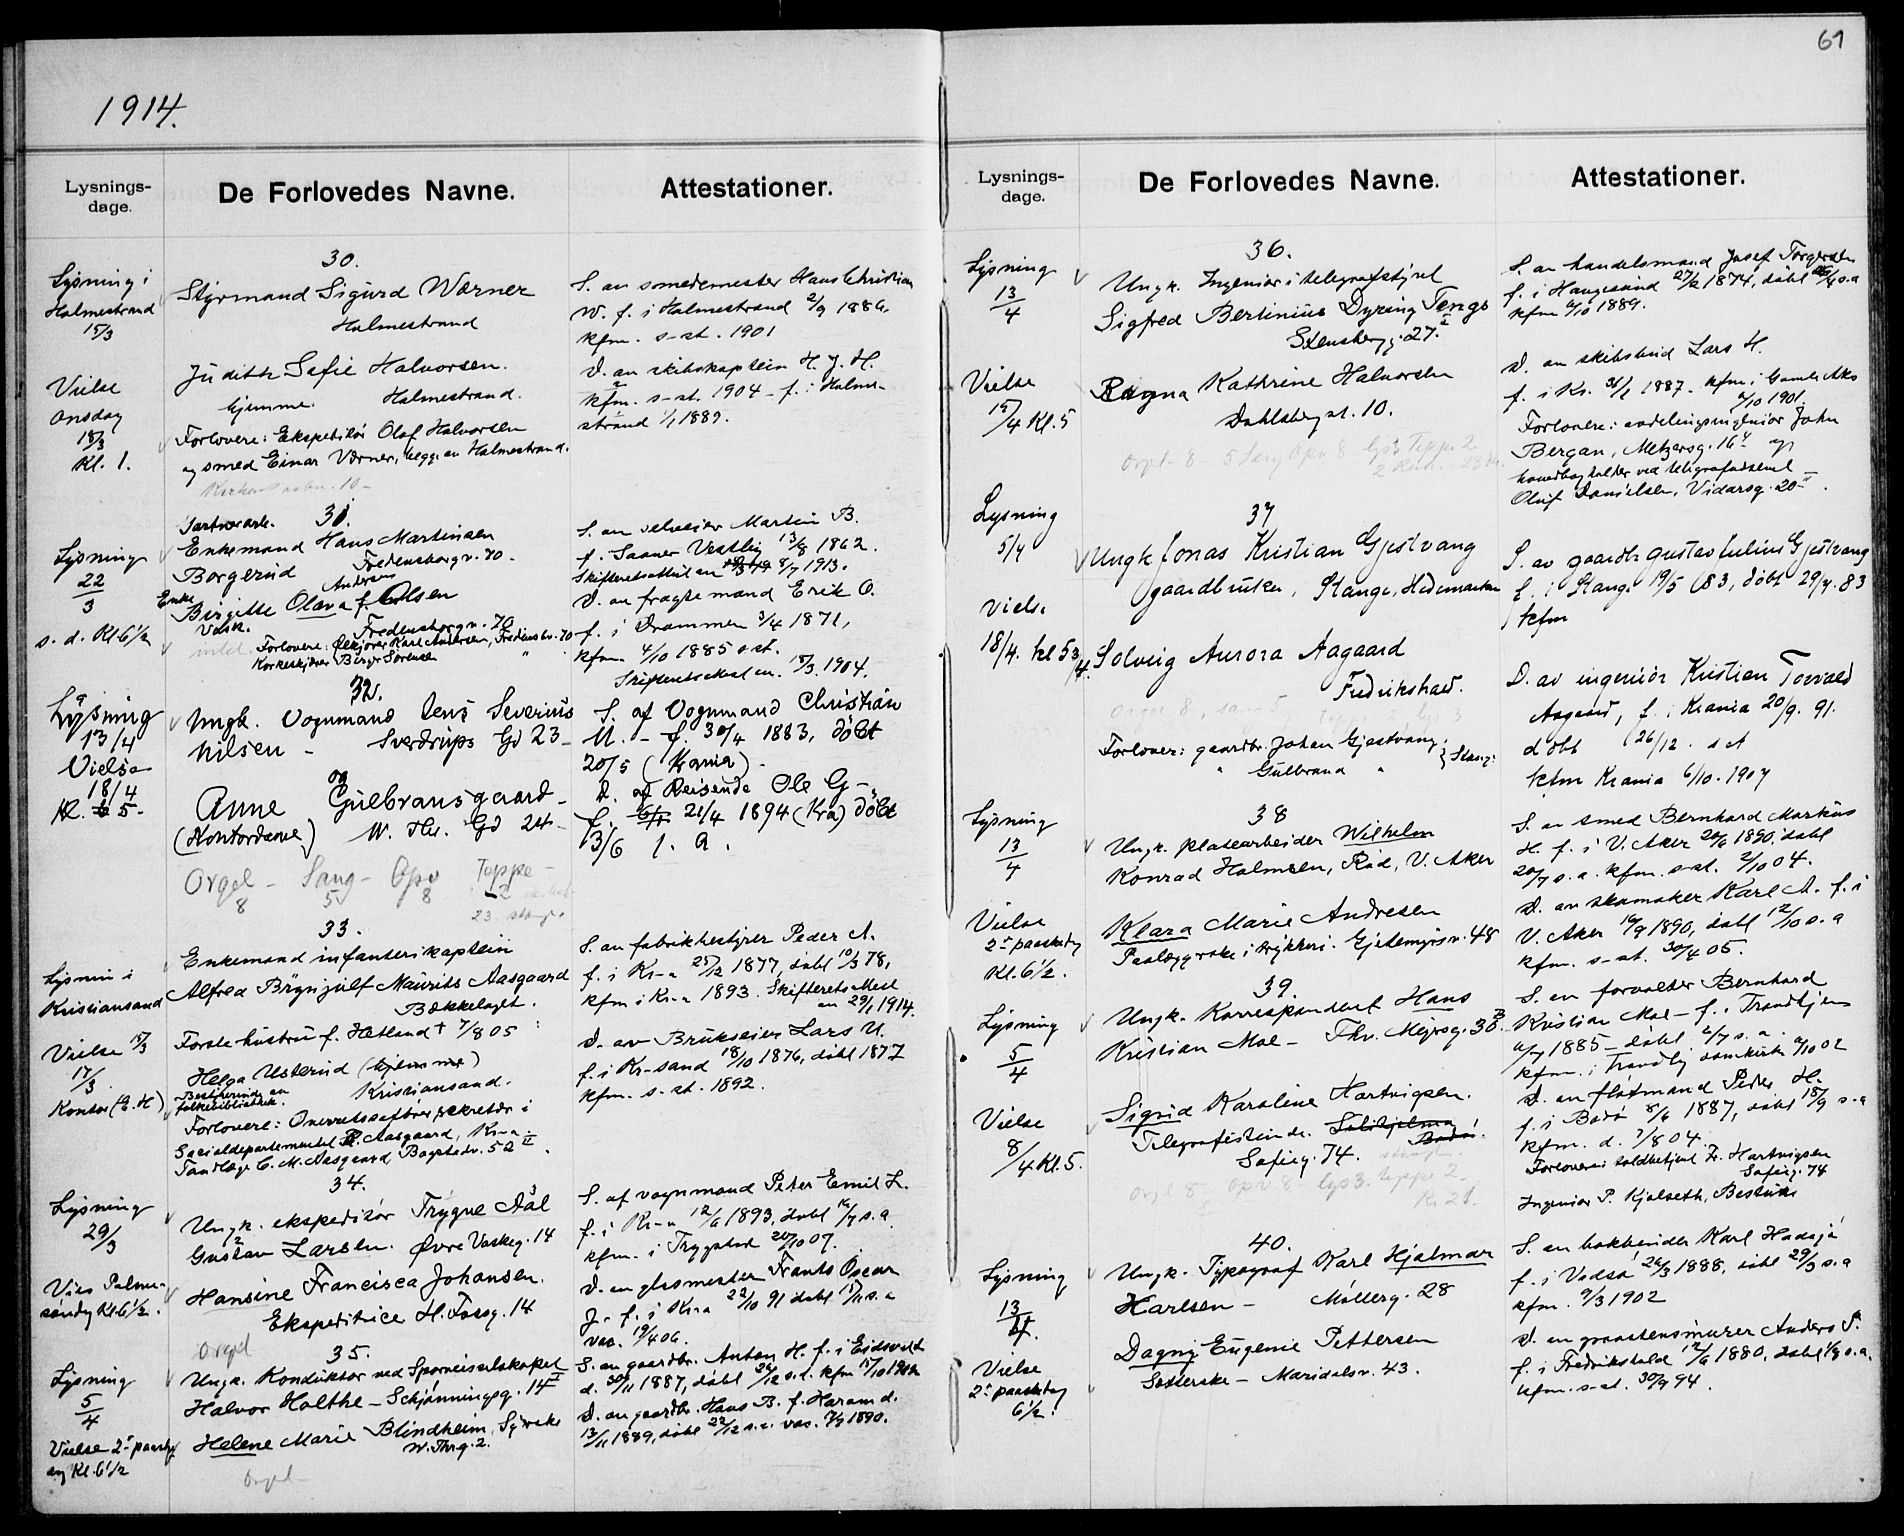 61
1914.
Lysnings-
dage.
De Forlovedes Navne.
Attestationer.
30.
Lysning i
Holmestrand
15/3
Vielse
onsdag
18/3
Kl. 1.
Styrmand Sigurd Wærner
Holmestrand
Judith Sofie Halvorsen.
hjemme. Holmestrand.
Forlovere: Ekspeditør Olaf Halvorsen
og smed Einar Værner, begge av Holmestrand.
S. av smedemester Hans Christian
W. f. i Holmestrand 2/9 1886,
kfm. s-st. 1901
D. av skibskaptein H. J. H.
kfm. s-st. 1904 - f. i Holme-
strand 1/1 1889.
31.
Lysning
22
3
s. d. Kl. 6 1/2
Enkemand Hans Martinsen
Borgerud Fredensborgv. 70.
Andersen
Enke
Birgitte Olava f. Olsen
Vask. Fredensborgv. 70
Forlovere: Karl Andersen, Fredensbv. 70
Birger Sørensen
S. av selveier Martin B.
f. Saaner Vestby 13/8 1862.
Skifteretsattest av 8/7 1913.
D. av fragtemand Erik O.
f. i Drammen 3/4 1871,
kfm. 4/10 1885 s-st.
Skifteretsattest av 1904.
32.
Lysning
13/4
Vielse
18/4
Kl. 5.
Ungk. Vognmand Jens Severius
Nilsen - Sverdrups Gd 23-
og
Anne Gulbransgaard-
(Kontordame) W. Thr. Gd 24-
Orgel - Sang - Opv Teppe -
8 5 8 2
S. af Vognmand Christian
N. - f. 30/4 1883, døbt
20/5 (Krania).
D. af Reisende Ole G-
f. 21/4 1894 (Kra) døbt
13/6 s. a.
33.
Lysning i
Kristiansand
Vielse
17/3
Kontor (E. H)
Enkemand infanterikaptein
Alfred Brynjulf Maurits Aasgaard
Bækkelaget.
Første hustru f. Hetland † 7/8 05
Helga Usterud (hjemme)
Bestyrerinde av
folkebibliothek. Kristiansand.
Forlovere: Overretssakfører sekretær i
Socialdepartementet Aasgaard, Kr-a
Tandlæge C. M. Aasgaard Bogstadv. 52 II.
S. av fabrikbestyrer Peder A.
f. i Kr-a 25/12 1877, døbt 10/3 78,
kfm i Kr-a 1893. Skifteretsattest
av 29/1 1914.
D. av Brukseier Lars U.
f. i Kr-sand 18/10 1876, døbt 1877
kfm. s-st. 1892.
34.
Lysning
29/3
Vies Palme-
søndag Kl. 6 1/2.
Ungk. ekspeditør Trygve Aal
Gustav Larsen. Øvre Vaskeg. 14
Hansine Francisca Johansen.
Ekspeditrice H. Fossg. 14
Orgel
S. af vognmand Peter Emil L.
f. i Kr-a 12/6 1893, døbt 16/7 s. a.
kfm. i Trygstad 20/10 07.
D. av glasmester Frants Oscar
J. f. i Kr-a 22/10 91 døbt s. a
vac. 19/4 06.
35.
Lysning
5
4
Vielse 2den paaske-
dag Kl. 6 1/2
Ungk. Konduktør ved Sporveisselskapet
Halvor Holthe - Schjønningsg. 14 II
Helene Marie Blindheim, Syerske
W. Thrg. 2.
Orgel-
S. av gaardbr. Anton H. f. i Eidsvold
d. 30/11 1887, døbt 26/12 s. a. kfm
D. av gaardbr. Hans B. f. Haram d.
13/11 1889, døbt 22/12 s. a. vac.
Lysnings-
dage.
De Forlovedes Navne.
Attestationer.
36.
Lysning
13
4
Vielse
15/4 Kl. 5
Ungk. Ingeniør i telegrafstyret
Sigfred Bertinius Dyring Tengs
Stensbergg. 27. I
Ragna Kathrine Halvorsen
Dahlsbergst. 10.
S. av handelsmand Josef Torgersen
f. i Haugesund 27/2 1874, døbt s. a
kfm 1889.
D. av skibsbud Lars H.
f. i Kr. 1887. kfm i Gamle Aker
1901.
Forlovere: avdelingsingeniør John
Bergan, Metzersg. 16 og
hovedbogholder ved telegrafvæsenet
Oluf Danielsen, Vidarsg. 20 II.
37
Lysning
5/4
Vielse
18/4. kl 5 3/4.
Ungk Jonas Kristian Gjestvang
gaardbruker, Stange, Hedemarken
Solveig Aurora Aagaard
Fredrikshald.
Forlover: gaardbr. Johan Gjestvang.
" Gulbrand " } Stange
S. av gaardbr Gustav Julius Gjestvang
f. i Stange 19/5 83, døbt 29/7. 83
kfm
D. av ingeniør Kristian Torvald
Aagaard, f. i Krania 20/9. 91.
døbt 26/12. s A
kfm Krania 6/10. 1907
38
Lysning
13
4
Vielse
2den paaskedag
Kl. 6 1/2.
Ungk. platearbeider Wilhelm
Konrad Holmsen, Rød, V. Aker
Klara Marie Andresen
Paalæggerske i trykkeri. Gjetemyrsv. 48
S. av smed Bernhard Markus
H. f. i V. Aker 20/6 1890, døbt
20/7 s. a. kfm. s-st. 2/10 04.
D. av skomaker Karl A. f. i
V. Aker 16/9 1890, døbt 12/10 s. a
kfm. s-st. 30/4 05.
39.
Lysning
5
4
Vielse
8/4 Kl. 5.
Ungk. Korrespondent Hans
Kristian Moe - Thv. Meyersg. 38
Sigrid Karoline Hartvigsen.
Telegrafistinde.
Sofieg. 74.
S. av forvalter Bernhard
Kristian Moe - f. i Trondhjem
1885 - døbt s. a.
kfm. i Trondhj domkirke 02
D. av fløtmand Peder H.
f. i Bodø 1887, døbt 18/9 s. a
kfm. d. 7/8 04.
Forlovere: toldbetjent Fr. Hartvigsen
Sofieg. 74
Ingeniør P. Kjelseth, Bestum
40.
Lysning
13
4.
Vielse
2den paaskedag
6 1/2.
Ungk. Typograf Karl Hjalmar
Karlsen - Møllerg. 28
Dagny Eugenie Pettersen
Sætterske - Maridalsv. 43.
S. av bokbinder Karl
f. i Vadsø 26/3 1888, døbt 29/3 s. a
kfm. 9/3 1902
D. av graastensmurer Anders P.
f. i Fredrikshald 12/6 1880, døbt 1/8 s. a.
kfm. s-st. 30/9 94.